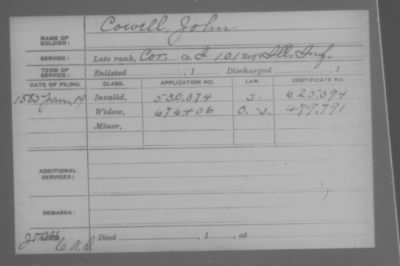 Cowell, John
NAME OF SOLDIER:
SERVICE: Late rank, Cor. Co. I 101 Reg't Ill. Inf.
TERM OF SERVICE: Enlisted , 1 Discharged , 1
DATE OF FILING. CLASS. APPLICATION NO. LAW. CERTIFICATE NO.
1885 Jan. 19 Invalid, 530,374 625,094
Widow, 676406 479,791
Minor,
ADDITIONAL SERVICES:
REMARKS:
Died , 1 , at